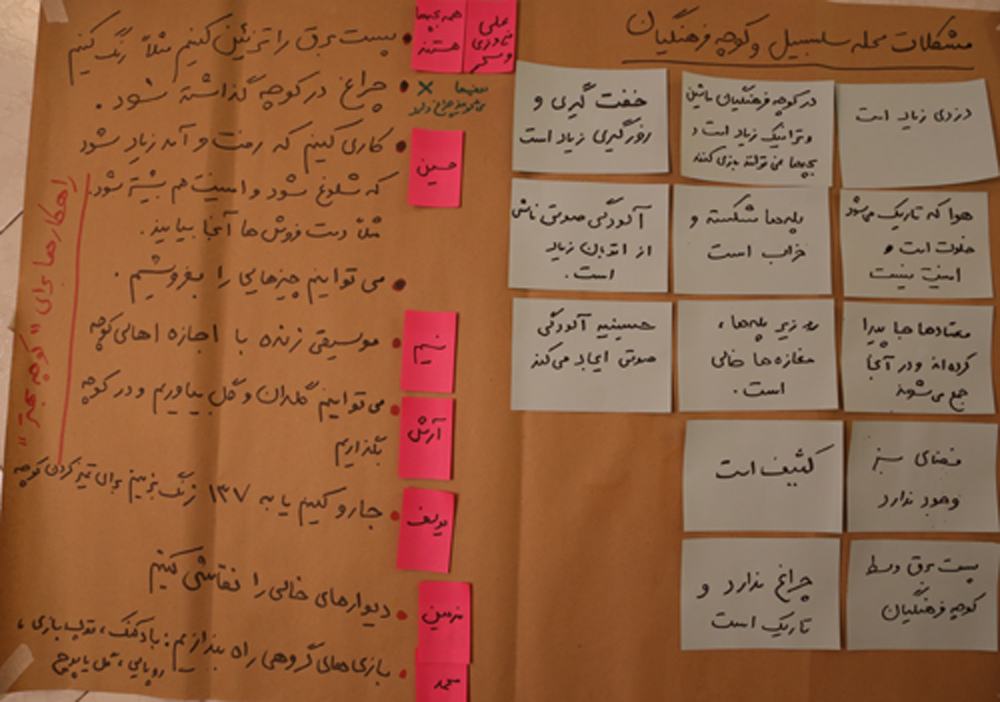 مشکلات محله سلسبیل و کوچه فرهنگیان
دزدی زیاد است
در کوچه فرهنگیان ماشین
و ترافیک زیاد است و
بچه‌ها می‌توانند بازی کنند
خفت گیری و
زورگیری زیاد است
هوا که تاریک می‌شود
خلوت است و
امنیت نیست
پله‌ها شکسته و
خراب است
آلودگی صوتی ناشی
از اتوبان زیاد
است.
معتادها جا پیدا
کرده‌اند و در آنجا
جمع می‌شوند
در زیر پله‌ها،
مغازه‌ها خالی
است.
حسینیه آلودگی
صوتی ایجاد می‌کند
فضای سبز
وجود ندارد
کثیف است
پست برق وسط
کوچه فرهنگیان
چراغ ندارد و
تاریک است
راهکارها برای "کوچه بهتر"
همه بچه‌ها
هستند
علی
و سحر
پست برق را تزئین کنیم مثلاً رنگ کنیم
چراغ در کوچه گذاشته شود.
حسین
کاری کنیم که رفت و آمد زیاد شود
که شلوغ شود و امنیت هم بیشتر شود.
مثلاً دست فروش‌ها آنجا بیایند.
می‌توانیم چیزهایی را بفروشیم.
نسیم
موسیقی زنده با اجازه اهالی کوچه
آرش
می‌توانیم گلدان و گل بیاوریم و در کوچه
بگذاریم
جارو کنیم یا به ۱۳۷ زنگ بزنیم برای تمیز کردن کوچه
نرمین
دیوارهای خالی را نقاشی کنیم
محمد
بازی‌های گروهی راه بندازیم: بادکنک، توپ بازی،